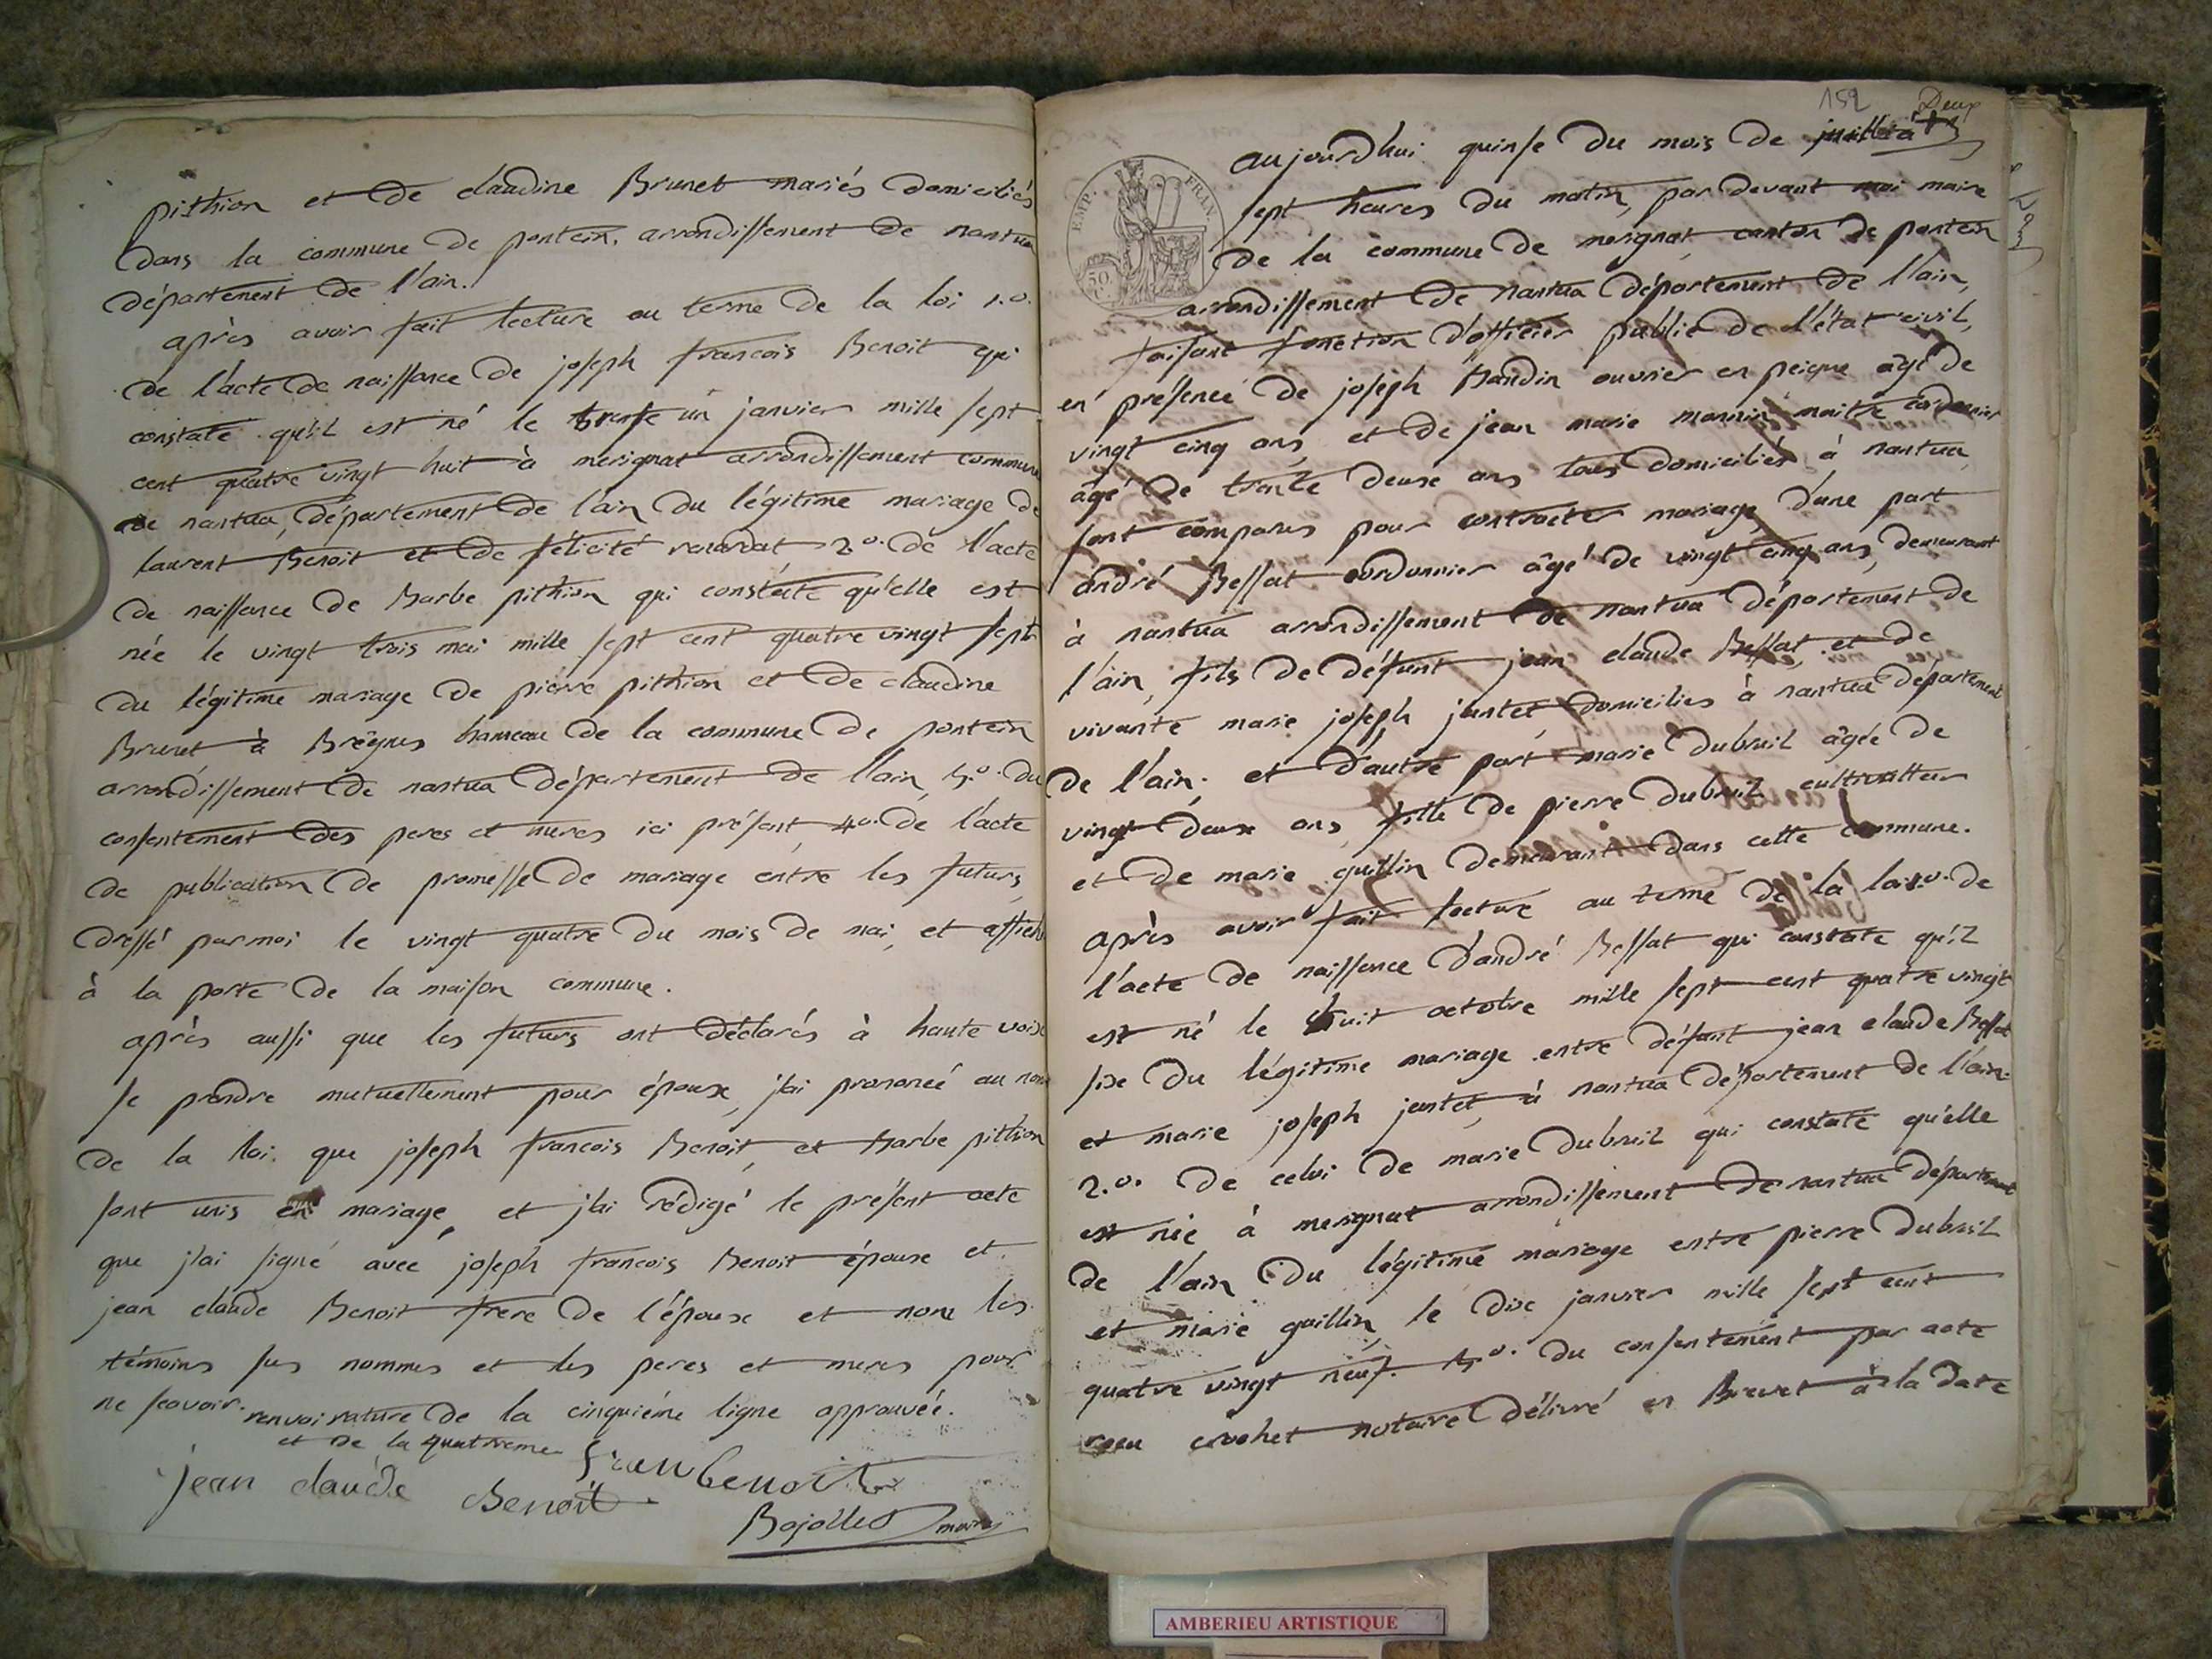 pithion et de claudine Brunet mariés domiciliés
dans la commune de poncin, arrondissement de nantua
département de l'ain.
après avoir fait lecture au terme de la loi 1.o.
de l'acte de naissance de joseph francois Benoit qui
constate qu'il est né le trente un janvier mille sept
cent quatre vingt huit à merignat arrondissement commune
de nantua, département de l'ain du légitime mariage de
laurent Benoit et de félicité 2o. de l'acte
de naissance de Barbe pithion qui constate qu'elle est
née le vingt trois mai mille sept cent quatre vingt sept
du légitime mariage de pierre pithion et de claudine
Brunet à Breignes hameau de la commune de poncin
arrondissement de nantua département de l'ain, 3.o. du
consentement des peres et meres ici présent, 4o. de l'acte
de publication de promesse de mariage entre les futurs,
dressé par moi le vingt quatre du mois de mai, et affiché
à la porte de la maison commune.
après aussi que les futurs ont déclarés à haute voix
se prendre mutuellement pour époux, j'ai prononcé au nom
de la loi que joseph francois Benoit, et Barbe pithion
sont unis en mariage, et j'ai rédigé le présent acte
que j'ai signé avec joseph francois Benoit époux et
jean claude Benoit frere de l'époux et non les
témoins sus nommes et les peres et meres pour
ne scavoir. renvoi rature de la cinquiéme ligne approuvée.
et de la quatrieme
jean claude Benoit fran benoit
Bojollet maire
152 Deux
aujourd'hui quinse du mois de
sept heures du matin, par devant moi maire
de la commune de merignat canton de poncin
arrondissement de nantua département de l'ain,
faisant fonction d'officier public de l'état civil,
en présence de joseph Baudin ouvrier en peigne âgé de
vingt cinq ans, et de jean marie monnin maitre cordonnier
âgé de trente deux ans tous domiciliés à nantua,
sont comparus pour contracter mariage, d'une part
andré Bessat cordonnier âgé de vingt cinq ans, demeurant
à nantua arrondissement de nantua département de
l'ain, fils de défunt jean claude Bessat, et de
vivante marie joseph jantet, domicilies à nantua département
de l'ain; et d'autre part marie dubreuil âgée de
vingt deux ans, fille de pierre dubreuil cultivatteur
et de marie guillin demeurant dans cette commune.
après avoir fait lecture au terme de la loi 1.o. de
l'acte de naissance d'andré Bessat qui constate qu'il
est né le huit octobre mille sept cent quatre vingt
six du légitime mariage entre défunt jean claude Bessat
et marie joseph jantet, à nantua département de l'ain.
2.o. de celui de marie dubreuil qui constate qu'elle
est née à merignat arrondissement de nantua département
de l'ain du légitime mariage entre pierre dubreuil
et marie guillin, le dix janvier mille sept cent
quatre vingt neuf. 3.o. du consentement par acte
reçu crochet notaire délivré en Brevet à la date
EMP. FRAN.
50 C.
AMBERIEU ARTISTIQUE